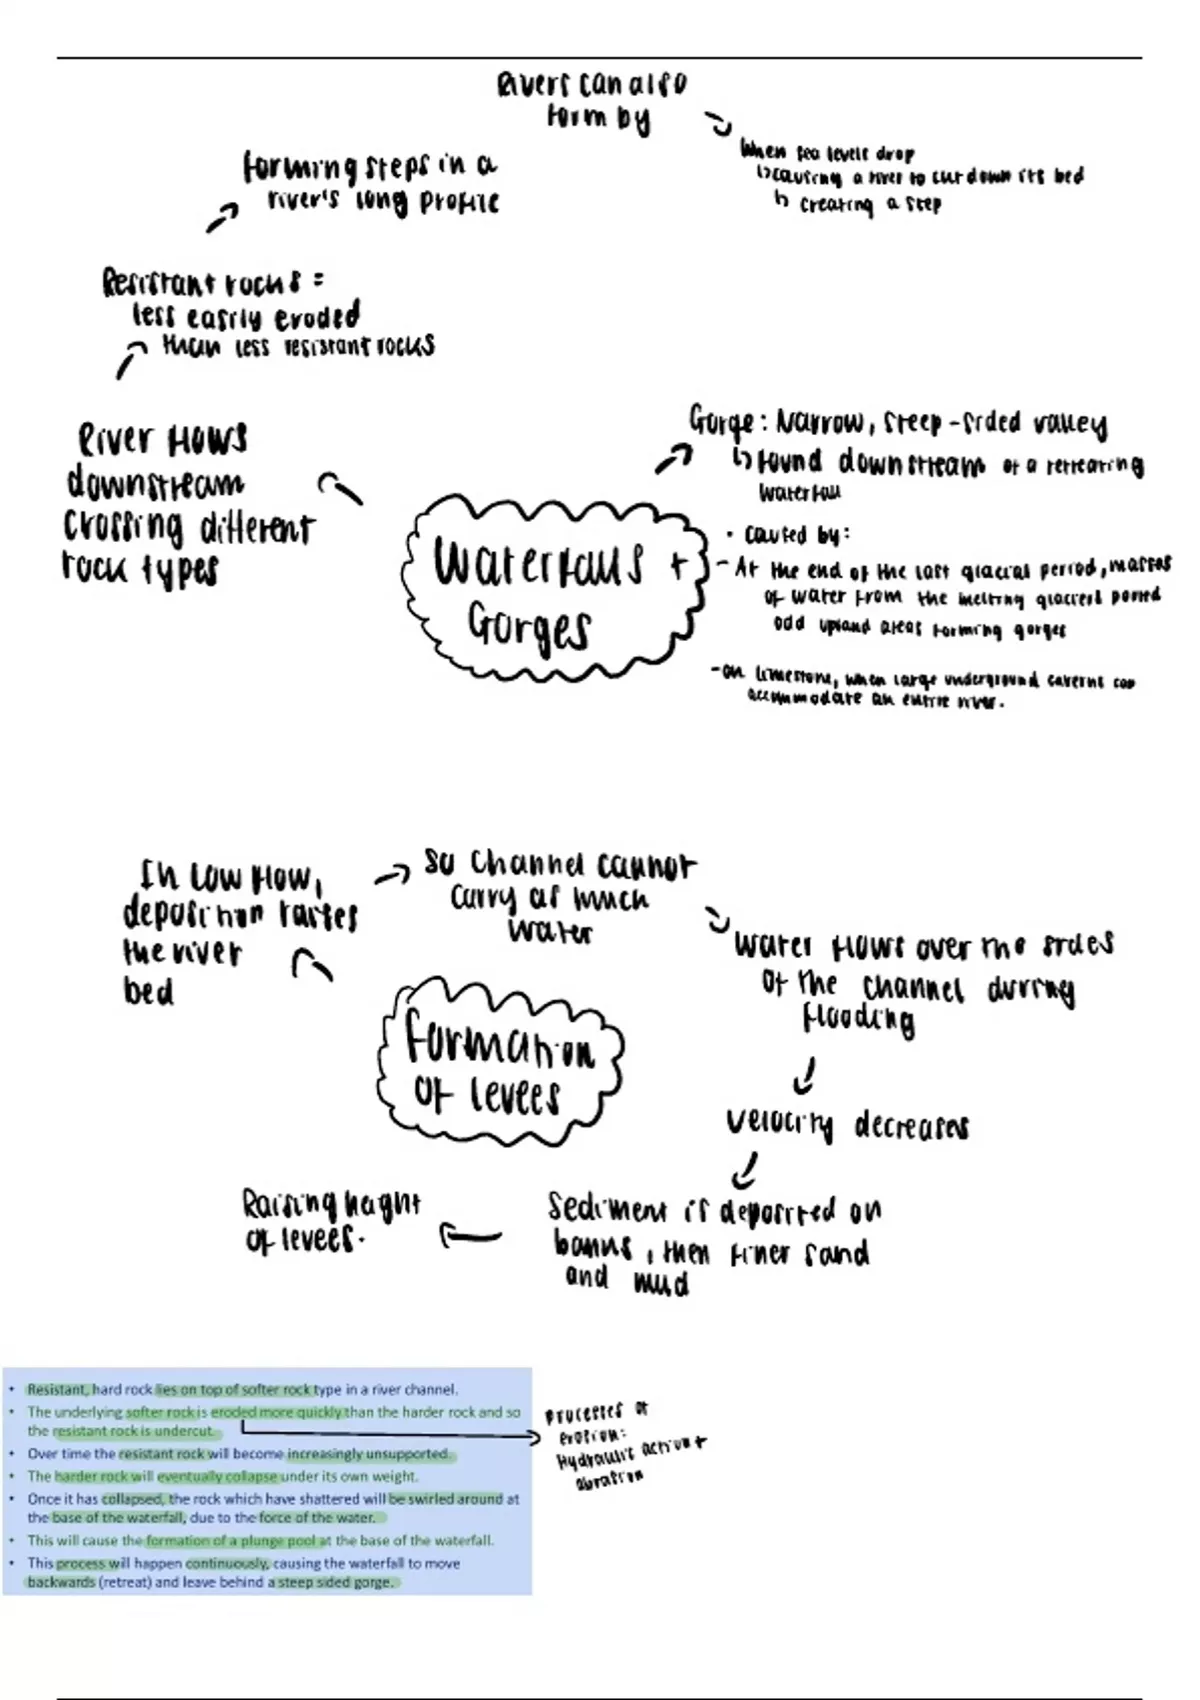 Rivers can also
form by
When sea levels drop
↳ causing a river to cut down its bed
↳ creating a step
forming steps in a
river's long profile
Resistant rocks =
less easily eroded
than less resistant rocks
River flows
downstream
crossing different
rock types
Gorge: Narrow, steep-sided valley
↳ found downstream of a retreating
waterfall
• caused by:
- At the end of the last glacial period, masses
of water from the melting glaciers poured
odd upland areas forming gorges
- on limestone, when large underground caverns can
accommodate an entire river.
Waterfalls +
Gorges
In low flow,
deposition raises
the river
bed
so channel cannot
carry as much
water
water flows over the sides
of the channel during
flooding
velocity decreases
Sediment is deposited on
banks, then finer sand
and mud
Raising height
of levees.
formation
of levees
• Resistant, hard rock lies on top of softer rock type in a river channel.
• The underlying softer rock is eroded more quickly than the harder rock and so
the resistant rock is undercut.
• Over time the resistant rock will become increasingly unsupported.
• The harder rock will eventually collapse under its own weight.
• Once it has collapsed, the rock which have shattered will be swirled around at
the base of the waterfall, due to the force of the water.
• This will cause the formation of a plunge pool at the base of the waterfall.
• This process will happen continuously, causing the waterfall to move
backwards (retreat) and leave behind a steep sided gorge.
processes of
erosion:
Hydraulic action +
abrasion